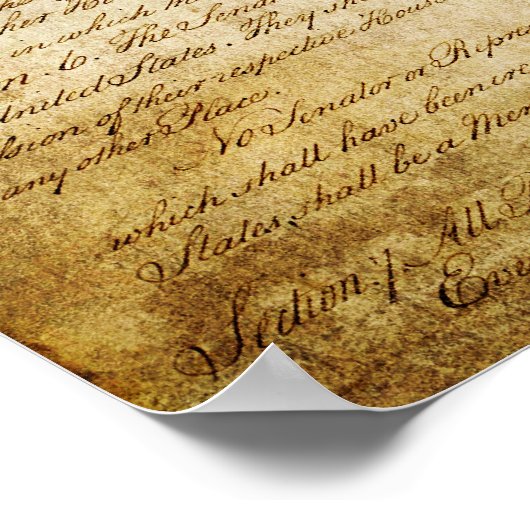 in which
The Senat
United States. They shall
ssion of their respective House
any other Place.
No Senator or Repres
which shall have been
States shall be a Mem
Section. 7. All
Eve